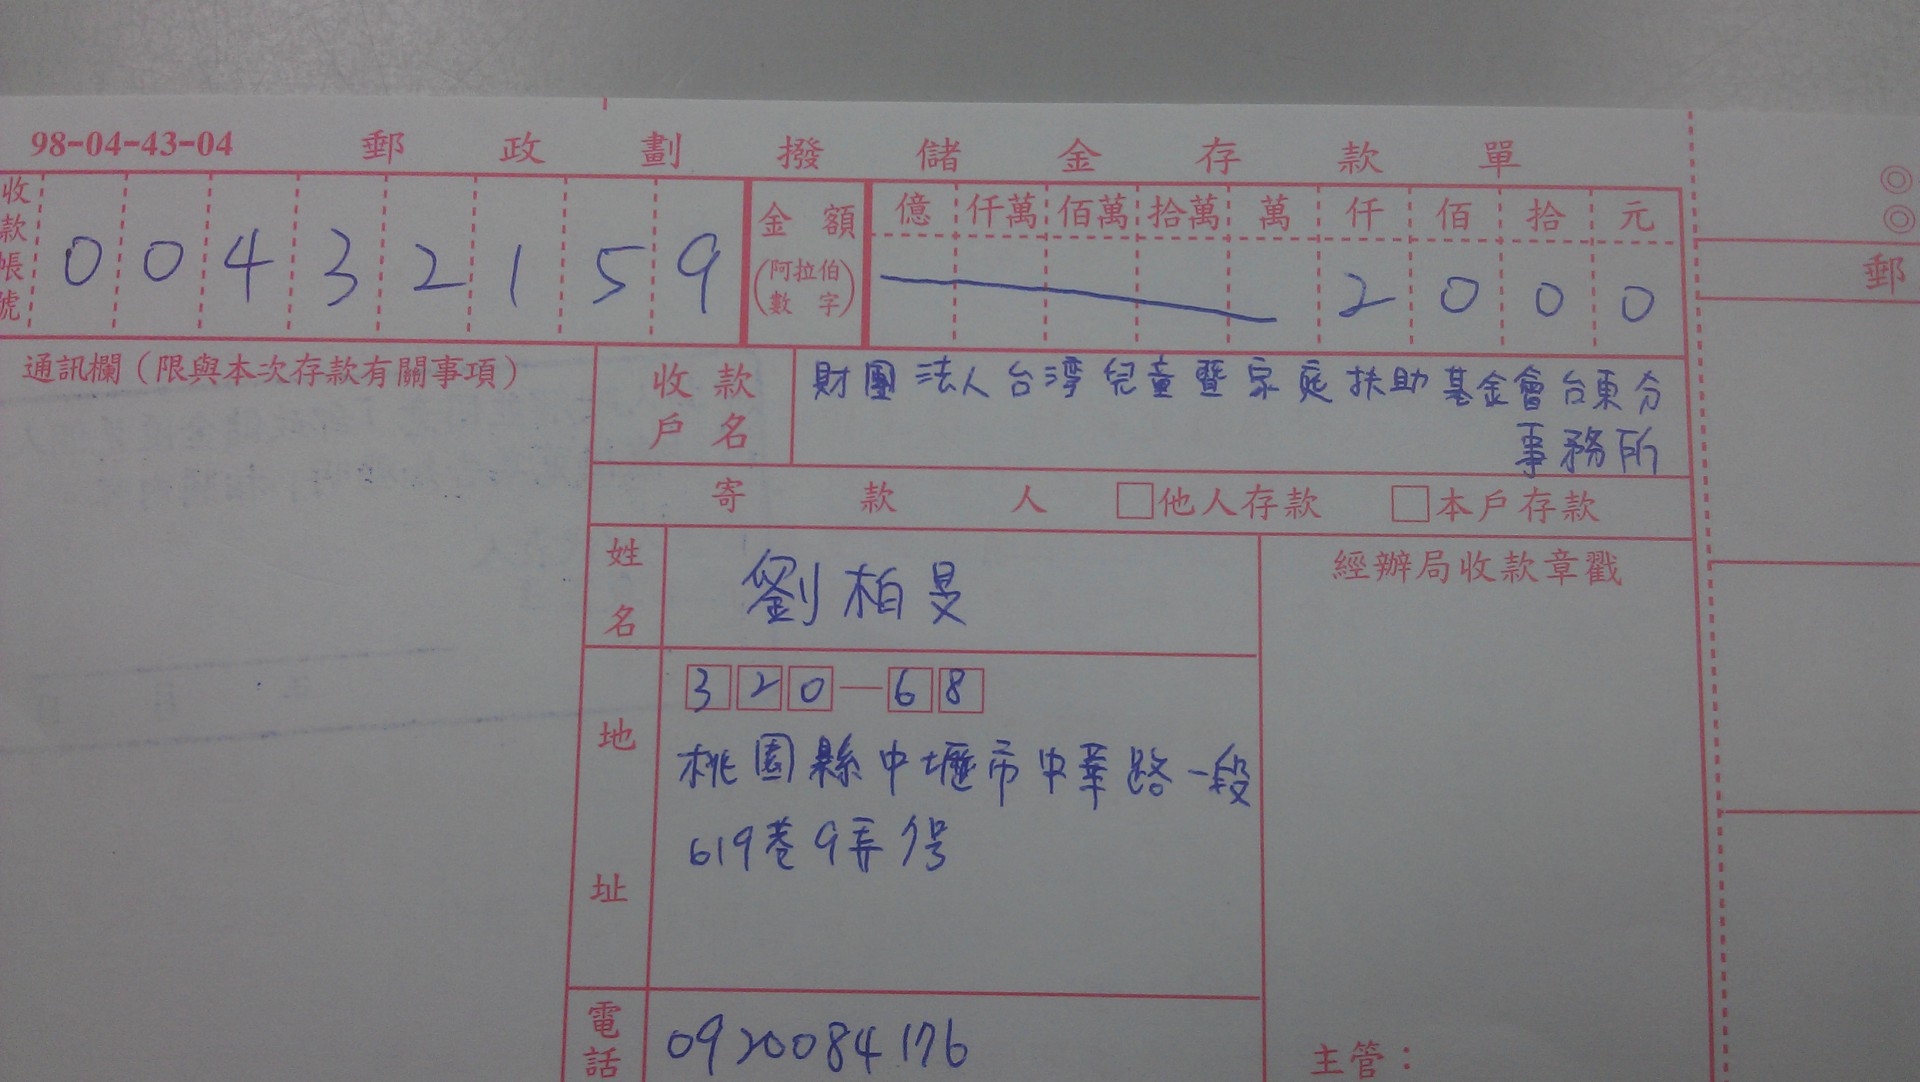 98-04-43-04 郵政劃撥儲金存款單
收款帳號 00432159
金額(阿拉伯數字) 億 仟萬 佰萬 拾萬 萬 仟 佰 拾 元
2000
通訊欄(限與本次存款有關事項)
收款戶名 財團法人台湾兒童暨家庭扶助基金會台東分
事務所
寄款人 □他人存款 □本戶存款
姓名 劉柏旻
經辦局收款章戳
地址 320-68
桃園縣中壢市中華路一段
619巷9弄1號
電話 0920084176
主管:
◎
◎
郵